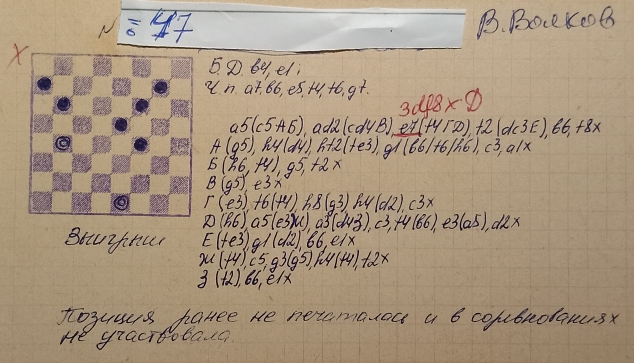 N 17
В. Волков
Х
Б. Д. b4, e1;
Ч. п. a7, b6, e5, f4, f6, g7.
3df8x Д
a5(c5 А Б), ad2(cd4 В), e7(f4 Г Д), f2(dc3 Е), b6, f8x
А (g5), h4(d4), hf2(fe3), g1(b6/f6/h6), c3, a1x
Б (h6, f4), g5, f2x
В (g5), e3x
Г (e3), f6(f4), h8(g3) h4(d2), c3x
Д (h6), a5(e3Ж), a3(d4З), c3, f4(b6), e3(a5), d2x
Е (fe3) g1(d2), b6, e1x
Ж (f4) c5, g3(g5), h4(f4), f2x
З (f2), b6, e1x
Выигрыш
Позиция ранее не печаталась и в соревнованиях
не участвовала.